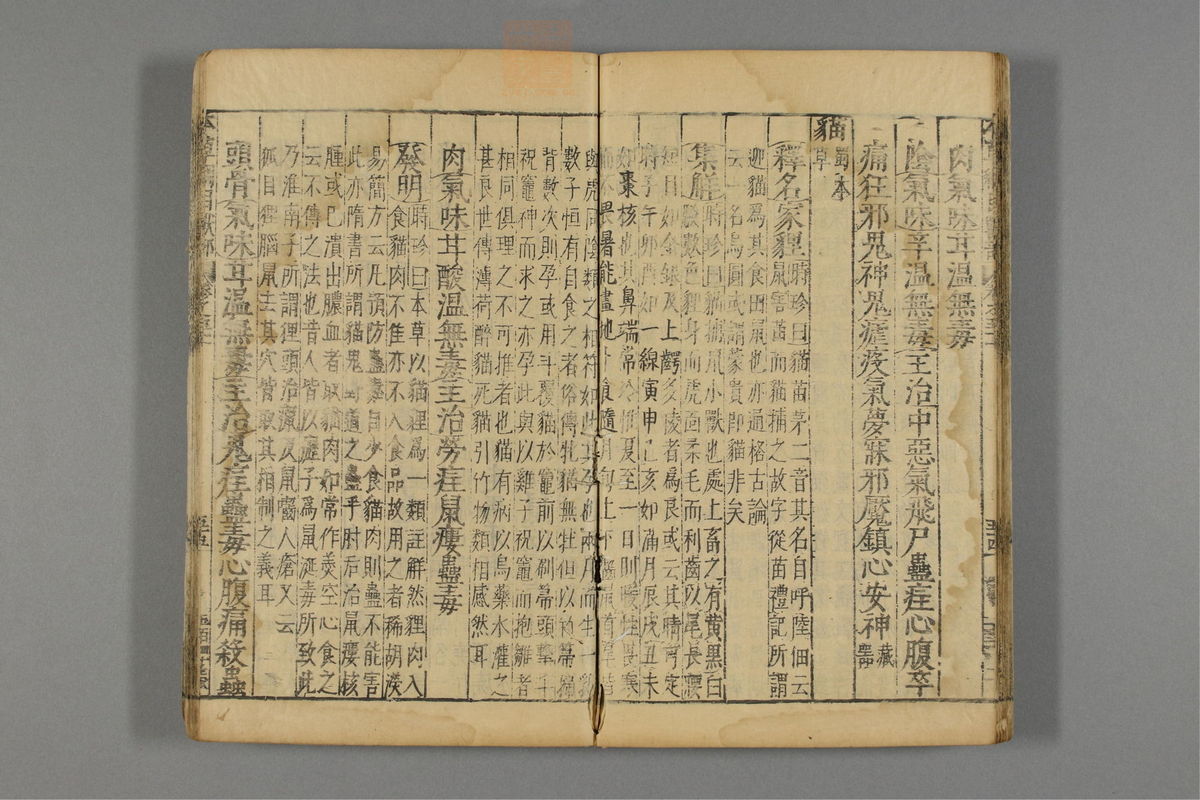 肉氣味甘溫無毒
陰氣味辛溫無毒主治中惡氣飛尸蠱疰心腹卒
痛狂邪鬼神鬼瘧疫氣夢寐邪魘鎮心安神藏器
貓蜀本草
釋名家貍時珍曰貓苗茅二音其名自呼陸佃云
鼠害苗而貓捕之故字從苗禮記所謂
迎貓為其食田鼠也亦通格古論
云一名烏圓或謂蒙貴即貓非矣
集解時珍曰貓捕鼠小獸也處處畜之有黃黑白
駁數色貍身而虎面柔毛而利齒以尾長腰
短目如金銀及上齶多稜者為良或云其睛可定
時子午卯酉如一線寅申巳亥如滿月辰戌丑未
如棗核也其鼻端常冷惟夏至一日則暖性畏寒
而不畏暑能畫地卜食隨月旬上下齧鼠首尾皆
與虎同陰類之相符如此其孕也兩月而生一乳
數子恒有自食之者俗傳牝貓無牡但以竹箒掃
背數次則孕或用斗覆貓於竈前以刷帚頭擊斗
祝竈神而求之亦孕此與以雞子祝竈而抱雛者
相同俱理之不可推者也貓有病以烏藥水灌之
甚良世傳薄荷醉貓死貓引竹物類相感然耳
肉氣味甘酸溫無毒主治勞疰鼠瘻蠱毒
發明時珍曰本草以貓貍為一類註解然貍肉入
食貓肉不佳亦不入食品故用之者稀胡濙
易簡方云凡預防蠱毒自少食貓肉則蠱不能害
此亦隋書所謂貓鬼野道之蠱乎肘后治鼠瘻核
腫或已潰出膿血者取貓肉如常作羹空心食之
云不傳之法也昔人皆以瘻子為鼠涎毒所致此
乃淮南子所謂貍頭治瘻及鼠齧人瘡又云
狐目貍腦鼠去其穴皆取其相制之義耳
頭骨氣味甘溫無毒主治鬼疰蠱毒心腹痛殺蟲